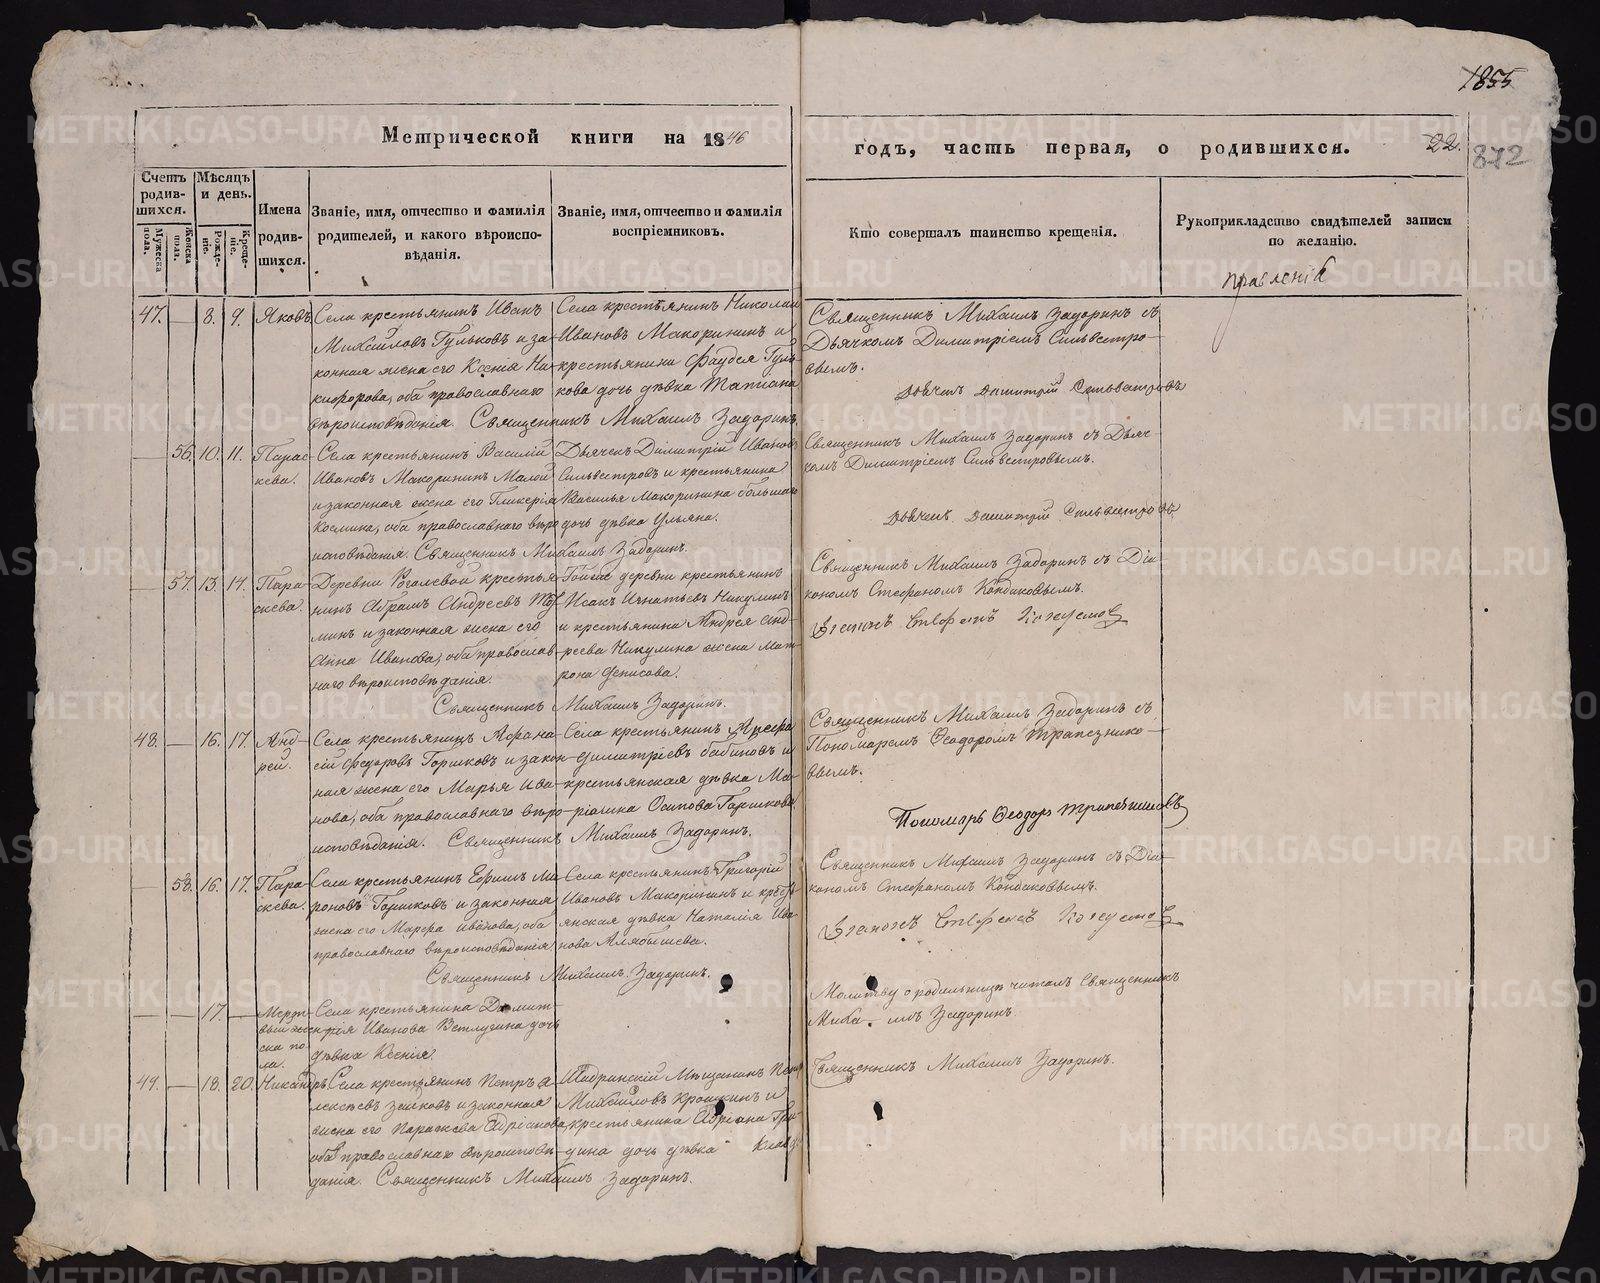 1855
Метрической книги на 1846
годъ, часть первая, о родившихся.
22.
872
Счетъ родив-шихся.
Мужеска пола.
Женска пола.
Мѣсяцъ и день.
Рожде-ніе.
Креще-ніе.
Имена родив-шихся.
Званіе, имя, отчество и фамилія
родителей, и какого вѣроиспо-
вѣданія.
Званіе, имя, отчество и фамилія
воспріемниковъ.
Кто совершалъ таинство крещенія.
Рукоприкладство свидѣтелей записи
по желанію.
правленія
47. — 8. 9. Яковъ
Села крестьянинъ Иванъ
Михайловъ Гульковъ и за-
конная жена его Ксенія Ни-
кифорова, оба православнаго
вѣроисповѣданія. Священникъ Михаилъ Задоринъ.
Села крестьянинъ Николай
Ивановъ Макоринъ и
крестьянина Фаддея Гуль-
кова дочь дѣвка Татиана
Священникъ Михаилъ Задоринъ съ
Дьячкомъ Димитріемъ Сильвестро-
вымъ.
Дьячекъ Димитрій Сильвестровъ
— 56. 10. 11. Парас-
кева.
Села крестьянинъ Василій
Ивановъ Макоринъ Малой
и законная жена его Гликерія
Космина, оба православнаго вѣро
исповѣданія. Священникъ Михаилъ Задоринъ.
Дьячекъ Димитрій Ивановъ
Сильвестровъ и крестьянина
Василья Макорина большаго
дочь дѣвка Ульяна.
Священникъ Михаилъ Задоринъ съ Дьяч-
комъ Димитріемъ Сильвестровымъ.
Дьячекъ Димитрій Сильвестровъ
— 57. 13. 14. Пара-
скева.
Деревни Роголевой крестья-
нинъ Абрамъ Андреевъ
и законная жена его
Анна Иванова, оба православ-
наго вѣроисповѣданія.
Священникъ Михаилъ Задоринъ.
Тойже деревни крестьянинъ
Исакъ Игнатьевъ Никулинъ
и крестьянина Андрея Анд-
реева Никулина жена Мат-
рона Денисова.
Священникъ Михаилъ Задоринъ съ Діа-
кономъ Стефаномъ Кондаковымъ.
48. — 16. 17. Анд-
рей.
Села крестьянинъ Афана-
сій Федоровъ Горшковъ и закон-
ная жена его Марья Ива-
нова, оба православнаго вѣро-
исповѣданія. Священникъ Михаилъ Задоринъ.
Села крестьянинъ
Димитріевъ Бабиновъ и
крестьянская дѣвка Ма-
ріамна Осипова Горшкова
Священникъ Михаилъ Задоринъ съ
Пономаремъ Ѳеодоромъ Трапезнико-
вымъ.
Пономарь Ѳеодоръ Трапезниковъ
— 58. 16. 17. Пара-
скева.
Села крестьянинъ Ефимъ Ми-
роновъ Горшковъ и законная
жена его Марфа Иванова, оба
православнаго вѣроисповѣданія
Священникъ Михаилъ Задоринъ.
Села крестьянинъ Григорій
Ивановъ Макоринъ и кресть-
янская дѣвка Наталія Ива-
нова Алябышева.
Священникъ Михаилъ Задоринъ съ Діа-
кономъ Стефаномъ Кондаковымъ.
— — 17. — Мерт-
вый жен-
ска по-
ла.
Села крестьянина Димит-
рія Иванова Ветлугина дочь
дѣвка Ксенія
Молитву о родильницѣ читалъ Священникъ
Михаилъ Задоринъ.
49. — 18. 20. Никандръ
Села крестьянинъ Петръ А-
лексѣевъ Зайковъ и законная
жена его Параскева Адріанова,
оба православнаго вѣроисповѣ-
данія. Священникъ Михаилъ Задоринъ.
Шадринскій Мѣщанинъ
Михайловъ Крошкинъ и
крестьянина Адріана
дочь дѣвка
Священникъ Михаилъ Задоринъ.
METRIKI.GASO-URAL.RU